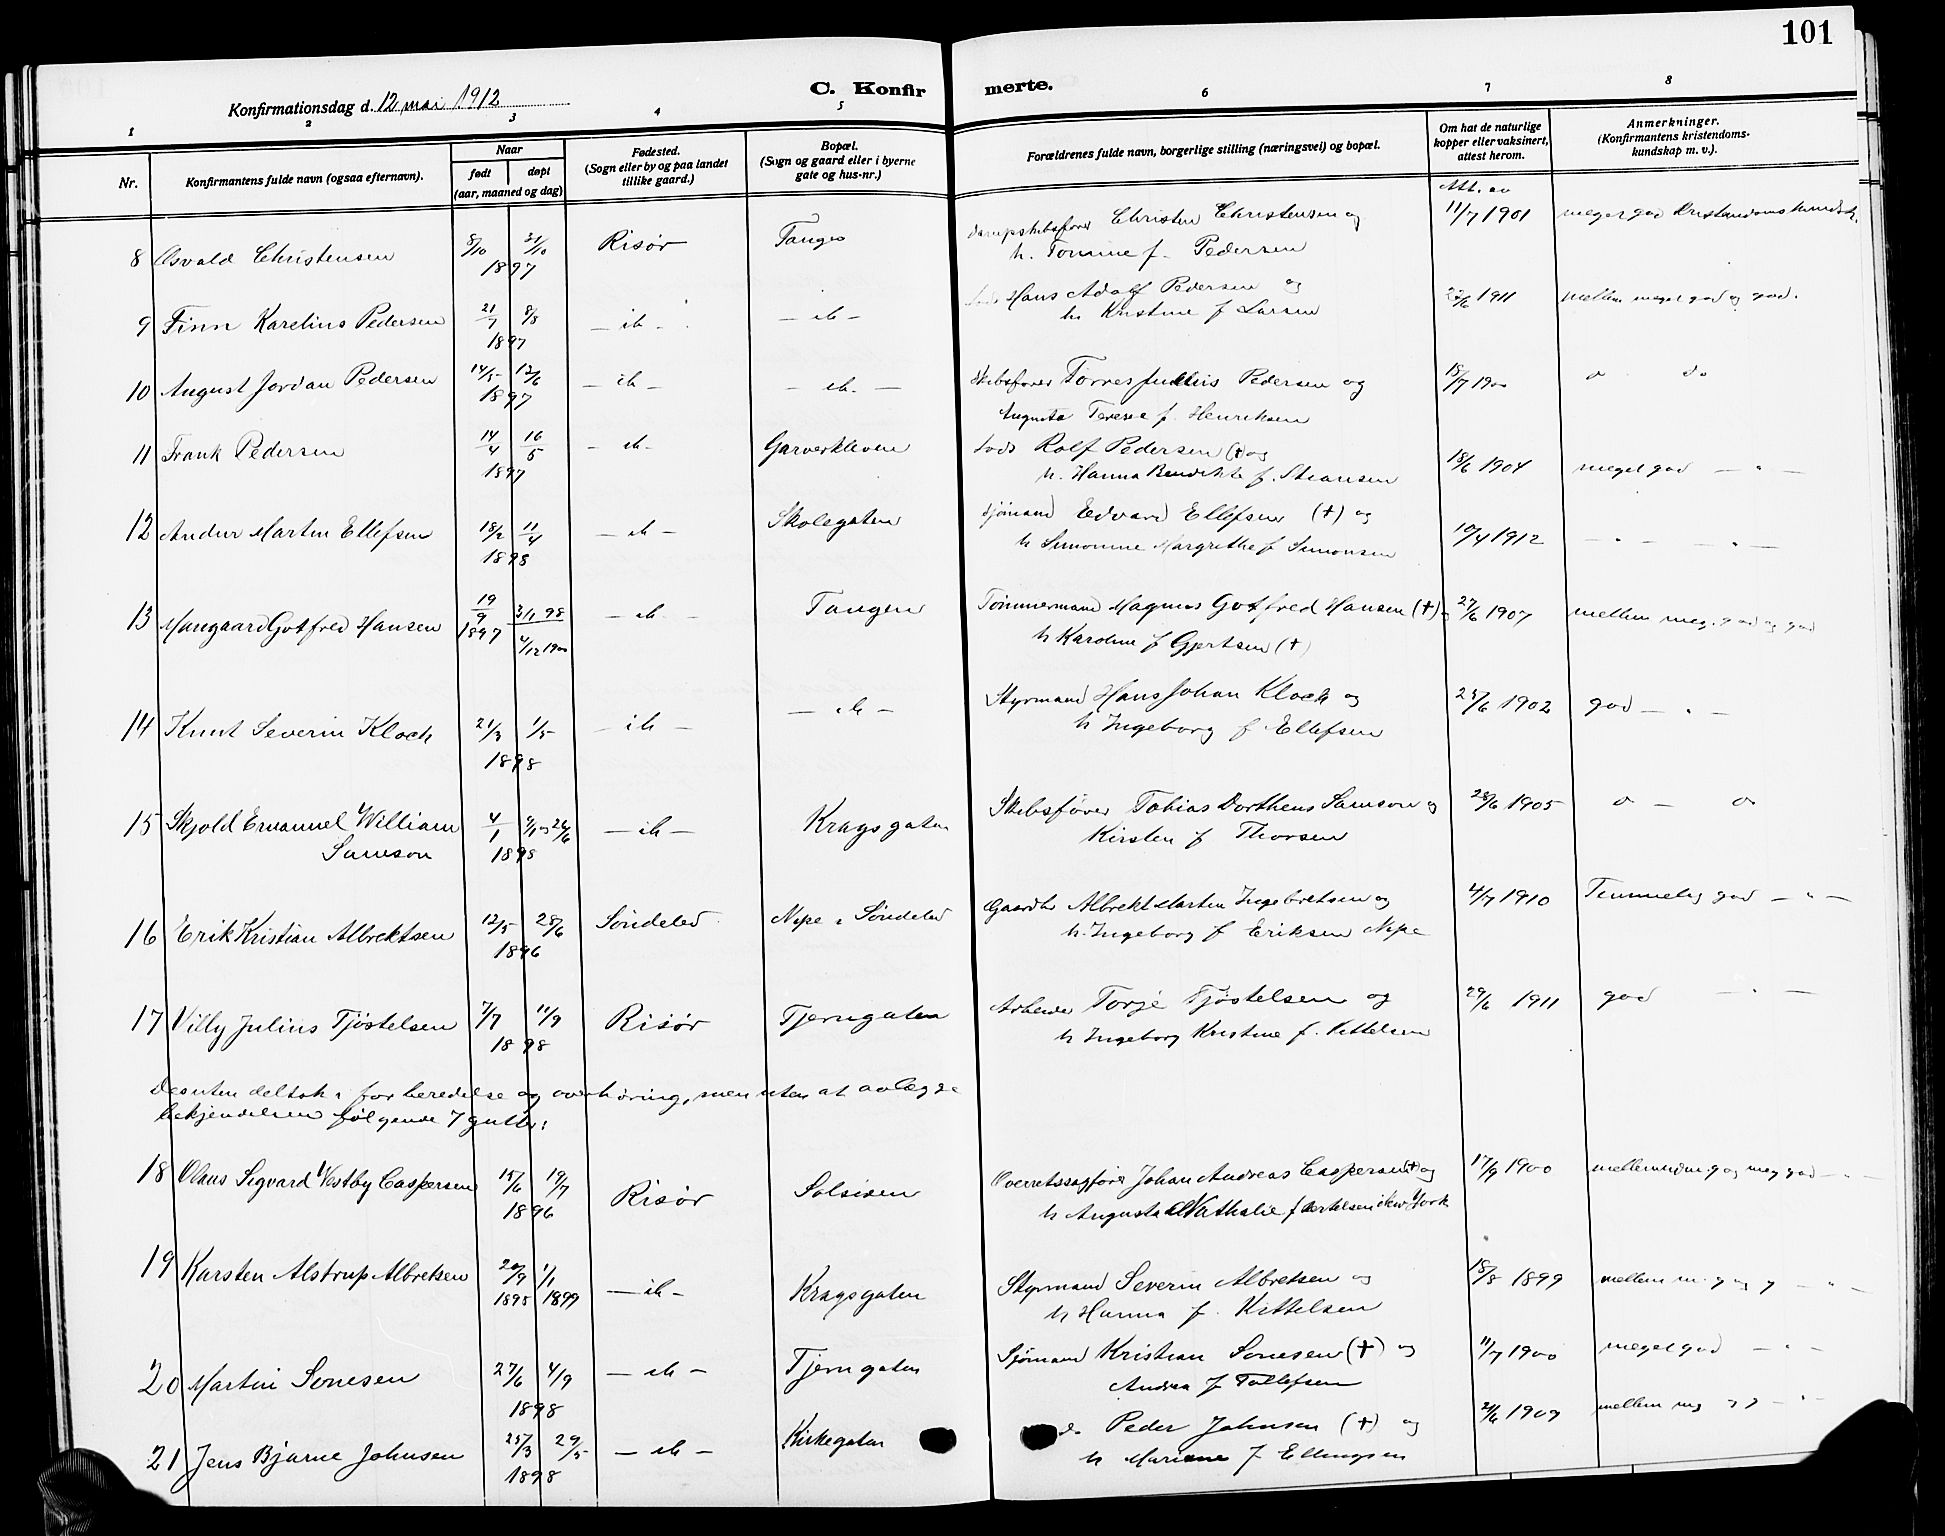 101
Konfirmationsdag d. 12 mai 1912
C. Konfirmerte.
1 2 3 4 5 6 7 8
Nr.
Konfirmantens fulde navn (ogsaa efternavn).
Naar
født døpt
(aar, maaned og dag)
Fødested.
(Sogn eller by og paa landet
tillike gaard.)
Bopæl.
(Sogn og gaard eller i byerne
gate og hus-nr.)
Forældrenes fulde navn, borgerlige stilling (næringsvei) og bopæl.
Om hat de naturlige
kopper eller vaksinert,
attest herom.
Anmerkninger.
(Konfirmantens kristendoms-
kundskap m. v.).
Att. av
8 Osvald Christensen 8/10 31/10 1897 Risør Tangen Christen Christensen og 11/7 1901 meget god Kristendomskundsk.
h. Tomine f. Pedersen
9 Finn Karelius Pedersen 21/7 8/8 1897 — ib — — ib — Hans Adolf Pedersen og 22/6 1911 mellem meget god og god.
h. Kristine f Larsen
10 August Jordan Pedersen 14/5 12/6 1897 — ib — — ib — Skibsfører Torres Julius Pedersen og 18/7 1900 do
Augusta Terese f. Henriksen
11 Frank Pedersen 14/4 16/5 1897 — ib — Garverkleven Lods Rolf Pedersen (†) og 18/6 1904 meget god — " —
h. Hanna Bendikte f. Stiansen
12 Andur Martin Ellefsen 18/2 11/4 1898 — ib — Skolegaten Sjømand Edvard Ellefsen (†) og 10/4 1912 — " — — " —
h Simonine Margrethe f Simonsen
13 Mangaard Gotfred Hansen 19/9 1897 3/1 98 4/12 1900 — ib — Tangen Tømmermand Magnus Gotfred Hansen (†) og 27/6 1907 mellem meg. god og god
h Karoline f Gjertsen (†)
14 Knut Severin Kloch 21/3 1/5 1898 — ib — — ib — Styrmand Hans Johan Kloch og 25/6 1902 god — " —
h Ingeborg f Ellefsen
15 Skjold Emanuel William 4/1 9/1 og 26/6 1898 — ib — Kragsgaten Skibsfører Tobias Dortheus Samson og 28/6 1905
Samson Kirsten f Thorsen
16 Erik Kristian Albrektsen 12/5 28/6 1896 Søndeled Nipe i Søndeled Gaardbr Albrekt Martin Ingebretsen og 4/7 1910 Temmelig god — " —
h. Ingeborg f Eriksen Nipe
17 Villy Julius Tjøstelsen 7/7 11/9 1898 Risør Tjerngaten Arbeider Torje Tjøstelsen og 29/6 1911 god — " —
h Ingeborg Kristine f. Kittelsen
Desuten deltok i forberedelse og overhøring, men uten at avlegge
bekjendelsen følgende 7 gutter:
18 Olaus Sigvard Vestby Caspersen 15/6 19/7 1896 Risør Solsiden Overretssagfører Johan Andreas Caspersen (†) og 17/9 1900
h Augusta Nathalie f Bertelsen i New York
19 Karsten Alstrup Albretsen 20/9 1898 1/1 1899 — ib — Kragsgaten Styrmand Severin Albretsen og 18/8 1899 mellem m. g og g — " —
h Hanna f. Kittelsen
20 Martin Sonesen 27/6 4/9 1898 — ib — Tjerngaten Sjømand Kristian Sonesen (†) og 11/7 1900 meget god — " —
Andrea f Tallefsen
21 Jens Bjarne Johnsen 25/3 29/5 1898 — ib — Kirkegaten do Peder Johnsen (†) og 24/6 1909
h Mariane f Ellingsen